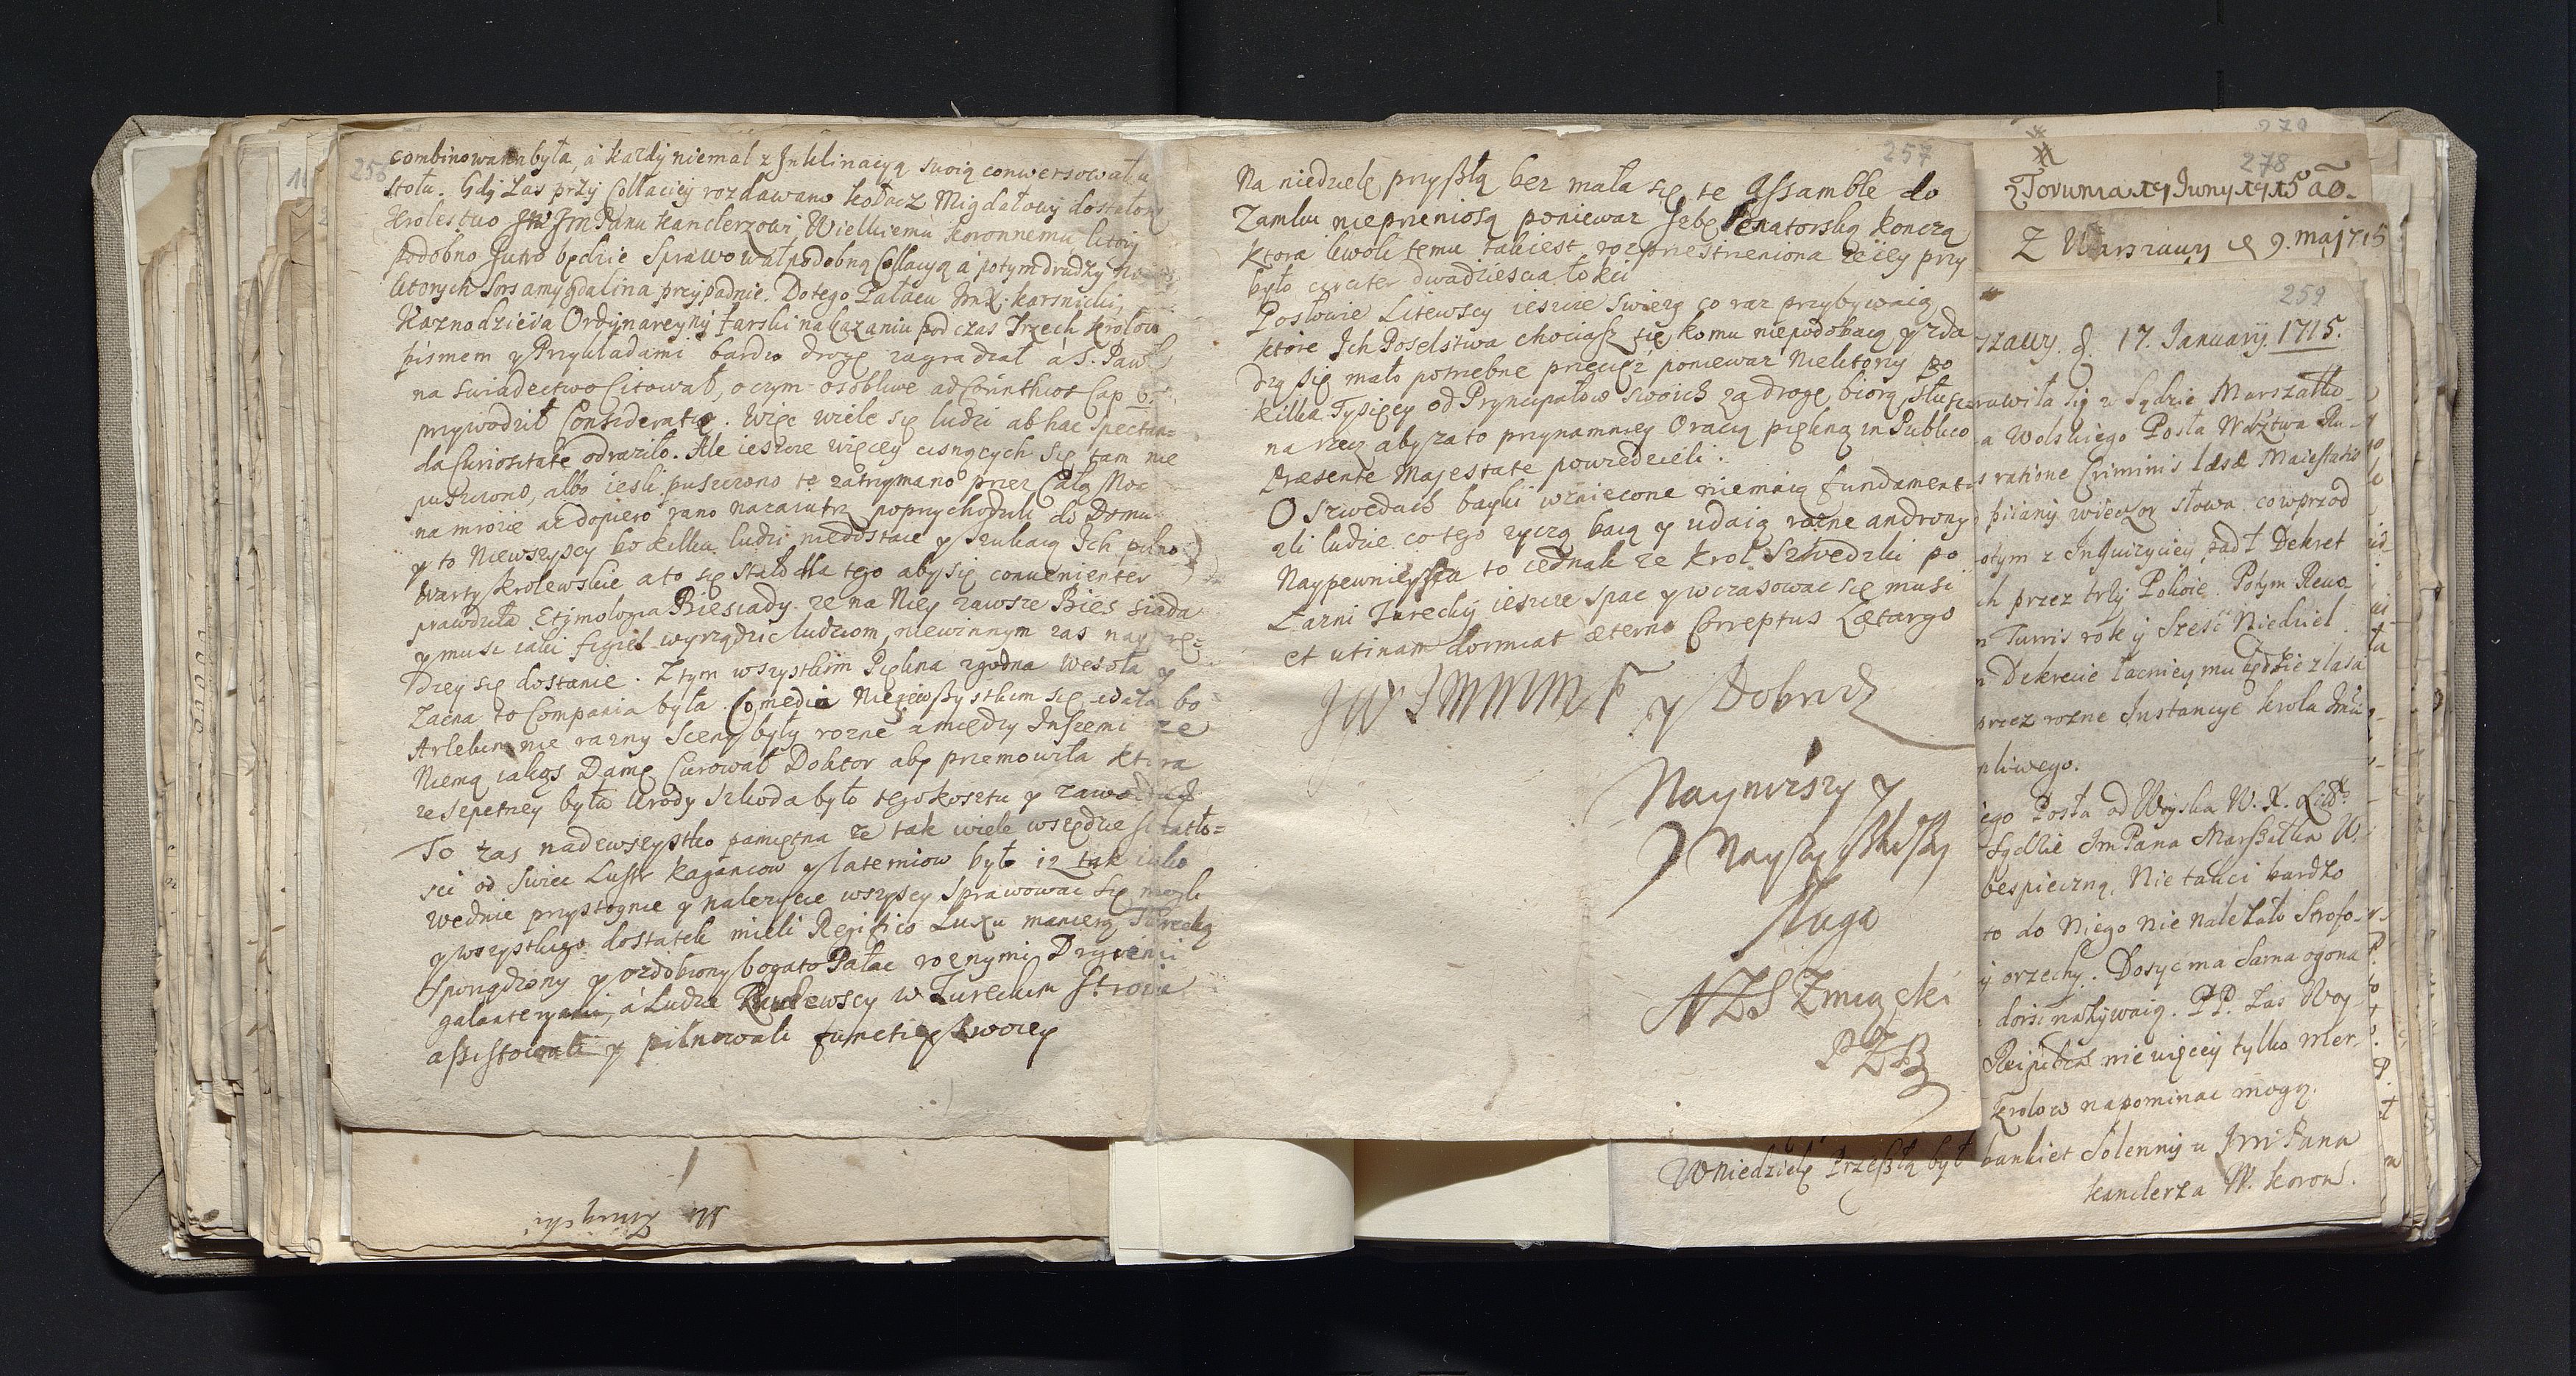 256
combinowana była, á kazdy niemal z Inklinacyą swoią conwersował u
stołu. Gdy zas przy Collaciey rozdawano kołacz Migdałowy dostał ony
krolestwo Jm Panu kanclerzowi Wielkiemu koronnemu ktory
podobno Jutro będzie sprawował podobną Collacyą á potym drudzy na
ktorych sors amygdalina przypadnie. Do tego Pałacu JmX. karsnicki,
Kaznodzieia Ordynaryiny farski na kazaniu pod czas Trzech krolow
pismem y Przykładami bardzo drogę zagradzał á S. Paw
na swiadectwo Citował, o czym osobliwe ad Corinthios Cap 6.
przywodził Consideratie. Więc wiele się ludzi ab hac spectan=
da Curiositate odraziło. Ale ieszcze więcey cisnących się tam nie
puszczono, albo iesli puszczono te zatrzymano przez Całą Noc
na mrozie az dopiero rano nazaiutrz poprzychodzili do Domu
y to Niewszyscy bo kilku ludzi niedostaie y szukaią Ich pilno
Warty krolewskie a to się stało dla tego aby się convenienter
prawdziła Etymologia Biesiady ze na Niey zawsze Bies siada
y musi iaki figiel wyrządzic ludziom, niewinnym zas nayprę=
dzey się dostanie. Z tym wszystkim Piękna zgodna Wesoła y
Zacna to Compania była. Comedia Niezewszystkim się udała bo
Arlekin nie razny Sceny były rozne a między Inszemi ze
Niemą iakąs Damę Curował Doktor aby przemowiła ktora
ze szpetney była Urody szkoda było tego kosztu y zawodu
To zas nadewszystko pamiętna ze tak wiele wszędzie swiatło=
sci od swiec Lustr kagancow y latemiow było iz tak iako
wednie przystoynie y nalezycie wszyscy sprawowac się mogli
y wszystkiego dostatek mieli Regifico Luxu manierą Turecką
sporządzony y ozdobiony bogato Pałac roznymi Drzewami
galanteryami, á Ludzie Krolewscy w Tureckim Stroiu
assistowali y pilnowali functiey swoiey
M Zmiącki
257
Na niedzielę przyszłą bez mała się te Assamble do
Zamku nieprzeniosą poniewaz Izbę Senatorską konczą
ktora kwoli temu tak iest rozprzestrzeniona ze iey przy
było circiter dwadziescia łokci
Posłowie Litewscy ieszcze swiezą co raz przybywaią
ktore Ich Poselstwa chociasz się komu niepodobaią y zda
dzą się mało potrzebne przecięż poniewaz Niektorzy po
kilka Tysięcy od Pryncypałow swoich za drogę biorą, słusz
na rzecz aby za to przynamniey Oracią piękną in Publico
Præsente Majestate powiedzieli.
O Szwedach bayki wzniecone niemaią fundament
zli ludzie co tego zyczą baią y udaią rozne androny
Naypewnieysza to iednak ze krol Szwedzki po
Łazni Tureckiy ieszcze spac y wczasowac się musi
et utinam dormiat æterno Correptus Lætargo
y Dobrdz
Nayniższy y
Nayszczyrszy
sługa
Zmiącki
PZB
278
z Torunia 14 Juny 1715 ao.
Z Warszawy d 9. maj 715
259
szawy. d. 17. January. 1715.
rawiła się w Sądzie Marszałko-
a Wolskiego Posła Wdztwa Ru-
s ratione Criminis læsæ Maiestatis
pijany wieczor słowa co wprzod
otym z Inquizyciey padł Dekret
ch przez trzy Pokoie. Potym Reuo
n Turris rok y szesc Niedziel
n Dekrecie łacniey mu będzie z łaski
przez rozne Instancye krola Jmci
pliwego.
iego Posła od Woyska W. X. Litt
Sądzie Jm Pana Marszałka W.
bespieczną. Nie tańci bardzo
to do Niego nie nalezało Strofo-
y orzechy. Dosyc ma sama ogona
dorsi nazywaią. PP. zas Woy-
Reipubcæ nie więcey tylko mer-
krolow napominac mogą.
W Niedzielę Przeszłą był bankiet Solenny u Jm Pana
kanclerza W. koron.